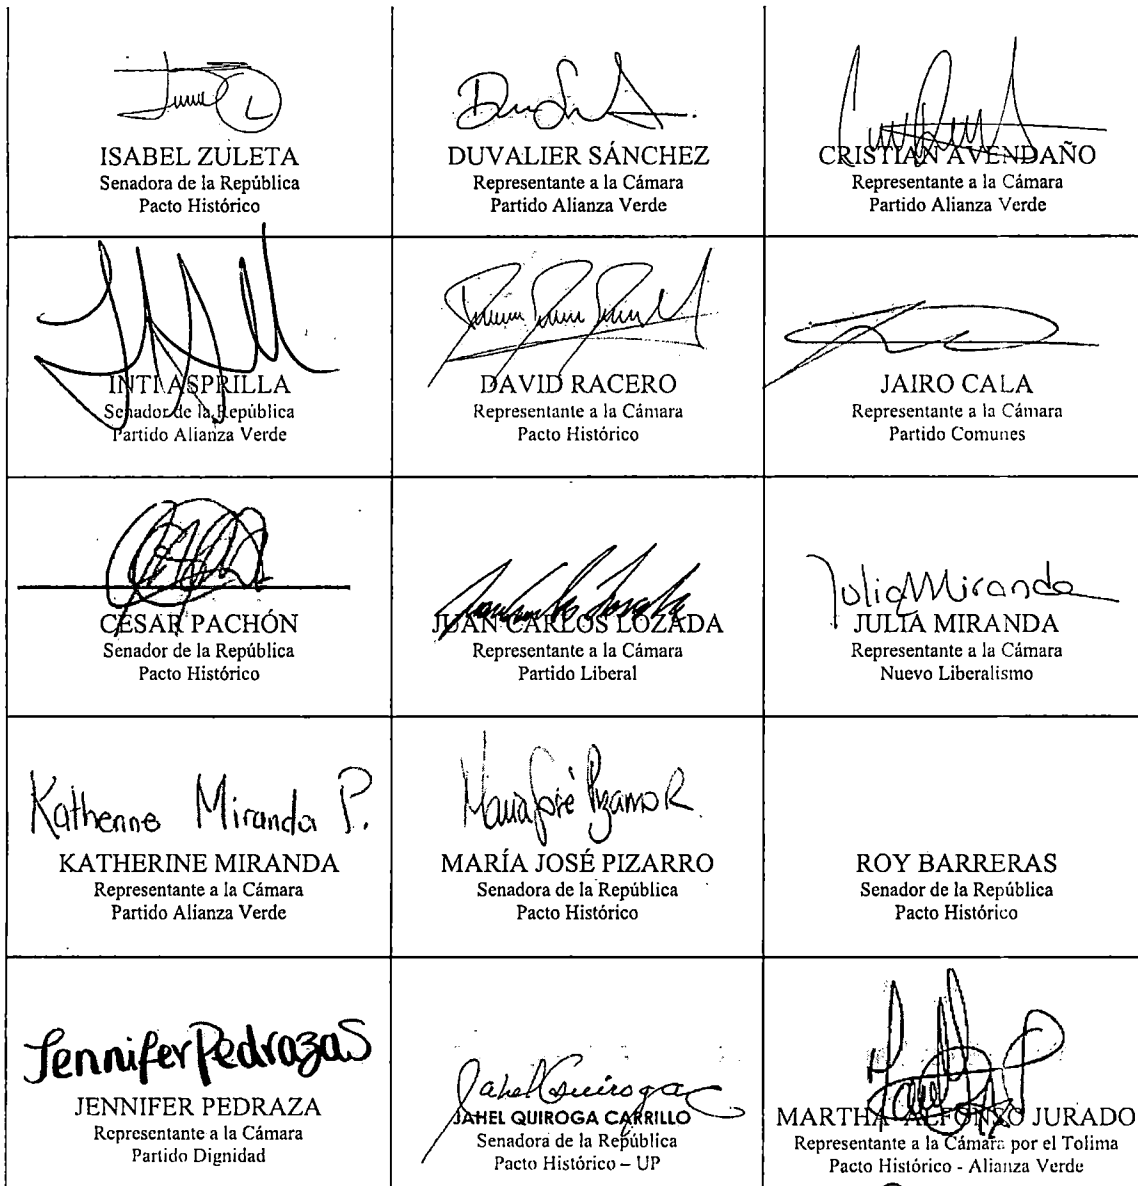 ISABEL ZULETA
Senadora de la República
Pacto Histórico
DUVALIER SÁNCHEZ
Representante a la Cámara
Partido Alianza Verde
CRISTIAN AVENDAÑO
Representante a la Cámara
Partido Alianza Verde
INTI ASPRILLA
Senador de la República
Partido Alianza Verde
DAVID RACERO
Representante a la Cámara
Pacto Histórico
JAIRO CALA
Representante a la Cámara
Partido Comunes
CESAR PACHÓN
Senador de la República
Pacto Histórico
JUAN CARLOS LOZADA
Representante a la Cámara
Partido Liberal
Julia Miranda
JULIA MIRANDA
Representante a la Cámara
Nuevo Liberalismo
Katherine Miranda P.
KATHERINE MIRANDA
Representante a la Cámara
Partido Alianza Verde
María José Pizarro R
MARÍA JOSÉ PIZARRO
Senadora de la República
Pacto Histórico
ROY BARRERAS
Senador de la República
Pacto Histórico
Jennifer Pedraza S
JENNIFER PEDRAZA
Representante a la Cámara
Partido Dignidad
Jahel Quiroga C
JAHEL QUIROGA CARRILLO
Senadora de la República
Pacto Histórico – UP
MARTHA ALFONSO JURADO
Representante a la Cámara por el Tolima
Pacto Histórico - Alianza Verde